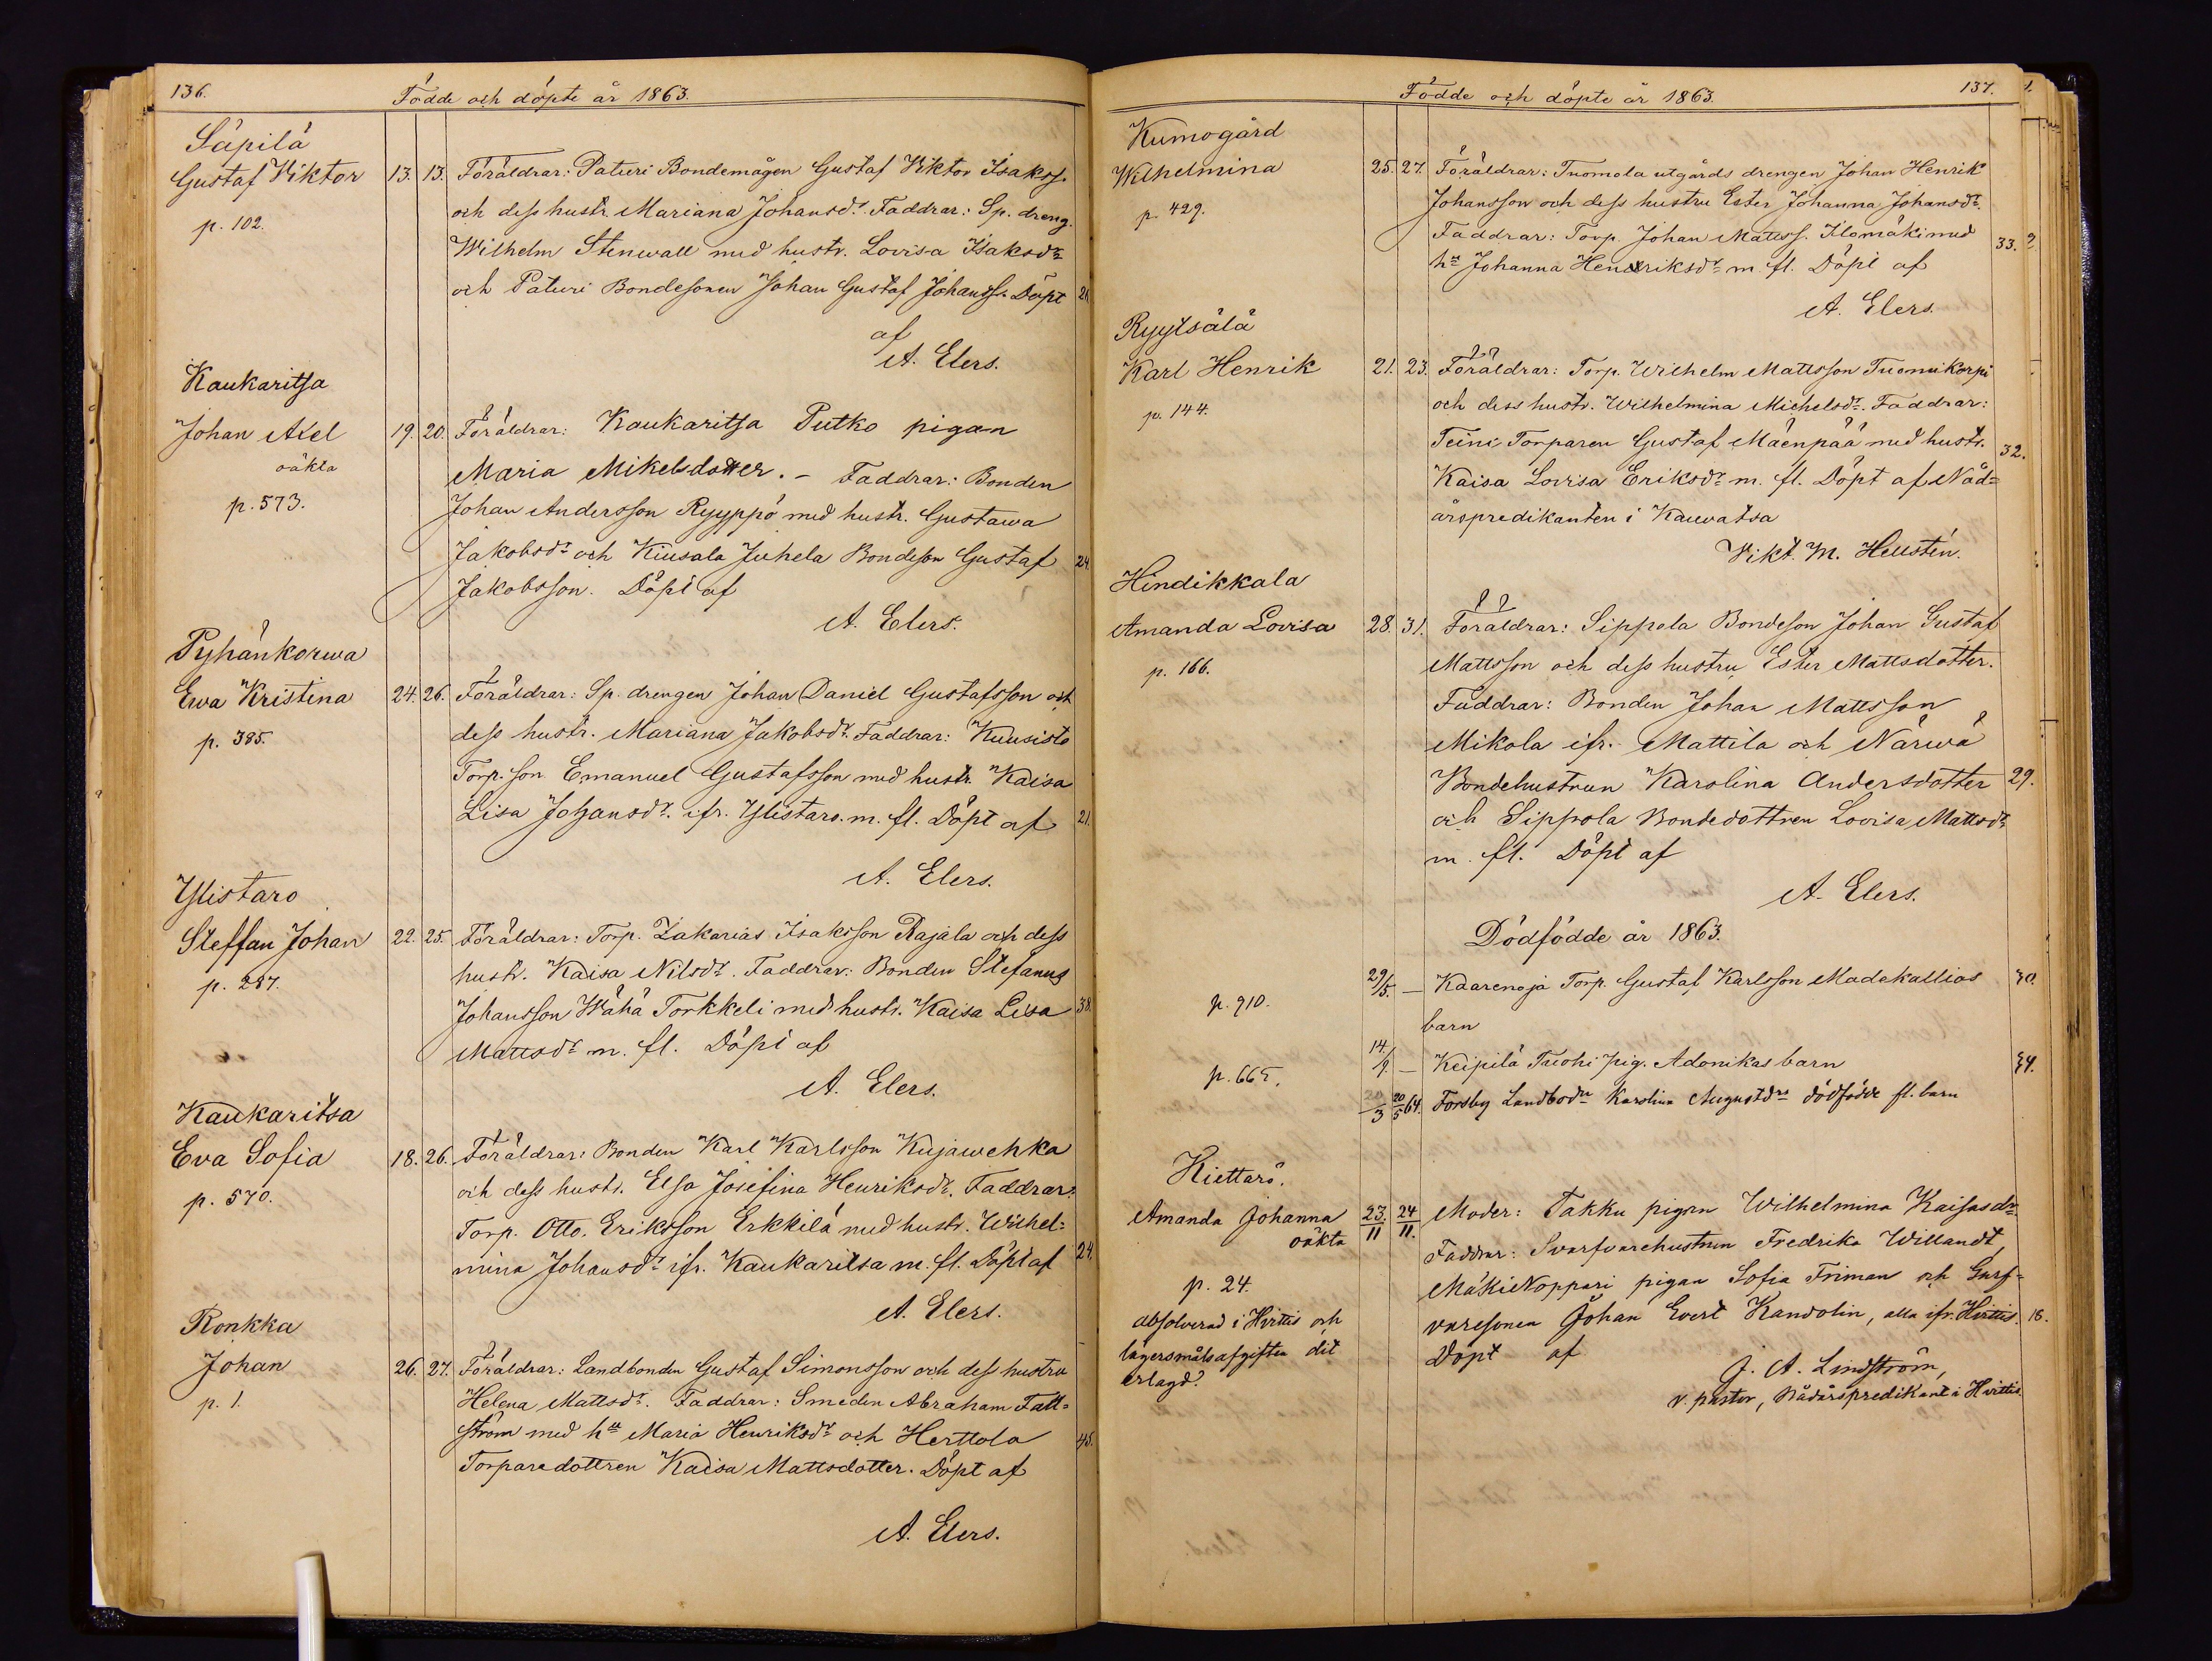 136.
Födde och döpte år 1863.
Säpilä
Gustaf Viktor 13. 13. Föräldrar: Paturi Bondemågen Gustaf Viktor Isakss.
p. 102.
och dess hustr. Mariana Johansdr. Faddrar: Sp. dreng.
Wilhelm Stenwall med hustr. Lovisa Isaksdr
och Paturi Bondesonen Johan Gustaf Johanss. Döpt
af
A. Elers.
Kaukaritsa
Johan Axel 19. 20. Föräldrar: Kaukaritsa Putko pigan
oäkta
p. 573.
Maria Mikelsdotter. - Faddrar: Bonden
Johan Andersson Ryyppö med hustr. Gustawa
Jakobsdr och Kiusala Juhela Bondeson Gustaf 24
Jakobsson. Döpt af
A. Elers.
Pyhänkorwa
Ewa Kristina 24. 26. Föräldrar: Sp. drengen Johan Daniel Gustafsson och
p. 385.
dess hustr. Mariana Jakobsdr. Faddrar: Kuusisto
Torp. son Emanuel Gustafsson med hustr. Kaisa
Lisa Johansdr. ifr. Ylistaro. m. fl. Döpt af 21.
A. Elers.
Ylistaro
Steffan Johan 22. 25. Föräldrar: Torp. Zakarias Isaksson Rajala och dess
p. 287.
hustr. Kaisa Nilsdr. Faddrar: Bonden Stefanus
Johansson Wähä Torkkeli med hustr. Kaisa Lisa 38.
Mattsdr m. fl. Döpt af
A. Elers.
Kaukaritsa
Eva Sofia 18. 26. Föräldrar: Bonden Karl Karlsson Kujawehka
p. 570.
och dess hustr. Elsa Josefina Henriksdr. Faddrar:
Torp. Otto Eriksson Erkkilä med hustr. Wilhel=
mina Johansdr ifr. Kaukaritsa m. fl. Döpt af 24.
A. Elers.
Ronkka
Johan 26. 27. Föräldrar: Landbonden Gustaf Simonsson och dess hustru
p. 1.
Helena Mattsdr. Faddrar: Smeden Abraham Fält=
ström med hu Maria Henriksdr och Herttola 45.
Torparedottren Kaisa Mattsdotter. Döpt af
A. Elers.
Födde och döpte år 1863.
137.
Kumogård
Wilhelmina 25. 27. Föräldrar: Tuomola utgårds drengen Johan Henrik
p. 429.
Johansson och dess hustru Ester Johanna Johansdr.
Faddrar: Torp. Johan Mattss. Ilomäki med 33.
hu Johanna Henriksdr m. fl. Döpt af
A. Elers.
Ryytsälä
Karl Henrik 21. 23. Föräldrar: Torp. Wilhelm Mattsson Tuomikorpi
p. 144.
och dess hustr. Wilhelmina Michelsdr. Faddrar:
Teini Torparen Gustaf Mäenpää med hustr. 32.
Kaisa Lovisa Eriksdr m. fl. Döpt af Nåd=
årspredikanten i Kauvatsa
Vikt. M. Hellstén.
Hindikkala
Amanda Lovisa 28. 31. Föräldrar: Sippola Bondeson Johan Gustaf
p. 166.
Mattsson och dess hustru Ester Mattsdotter.
Faddrar: Bonden Johan Mattsson
Mikola ifr. Mattila och Närwä
Bondehustrun Karolina Andersdotter 29.
och Sippola Bondedottren Lovisa Mattsdr
m. fl. Döpt af
A. Elers.
Dödfödde år 1863.
p. 910. 29/5. — Kaarenoja Torp. Gustaf Karlsson Madekallios 30.
barn
p. 665. 14./9. — Keipilä Tuohi pig. Adonikas barn 34.
20/3 20/5 64. Forsby Landbodr Karolina Augustdrs dödfödde fl. barn
Kiettarö.
Amanda Johanna 23./11 24/11. Moder: Takku pigan Wilhelmina Kaisasdr
oäkta
Faddrar: Svarfvarehustrun Fredrika Willandt,
p. 24.
MäkiNoppari pigan Sofia Friman och Garf=
absolverad i Hvittis och
varesonen Johan Evert Kandolin, alla ifr. Hvittis. 18.
lägersmålsafgiften dit
Döpt af
erlagd.
J. A. Lindström,
v. pastor, Nådårspredikant i Hvittis.